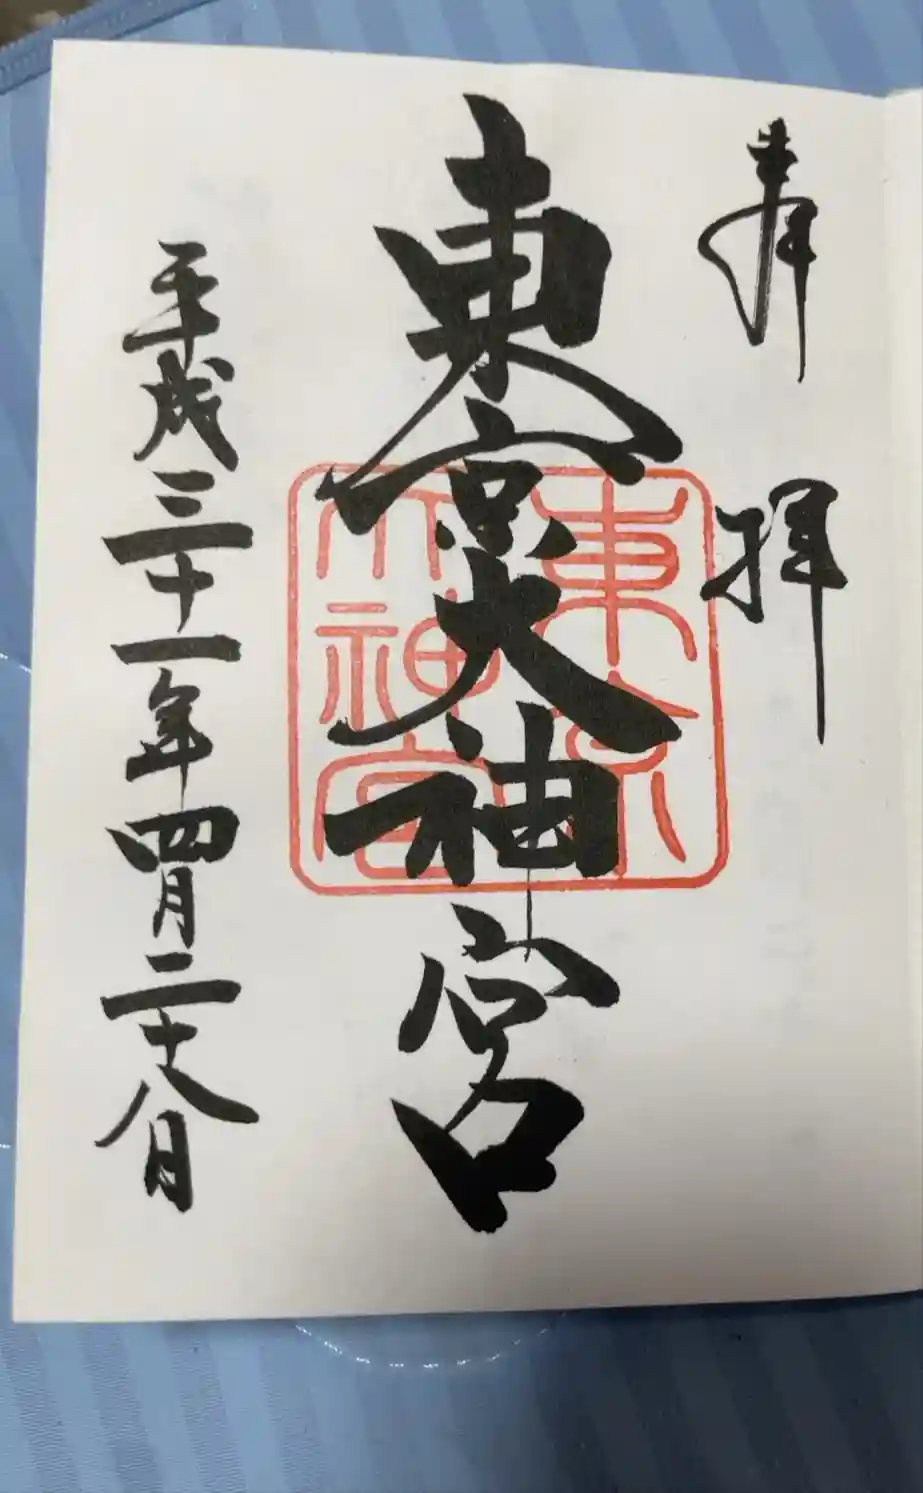 奉拝
東京大神宮
東京
大神宮
平成三十一年四月二十八日